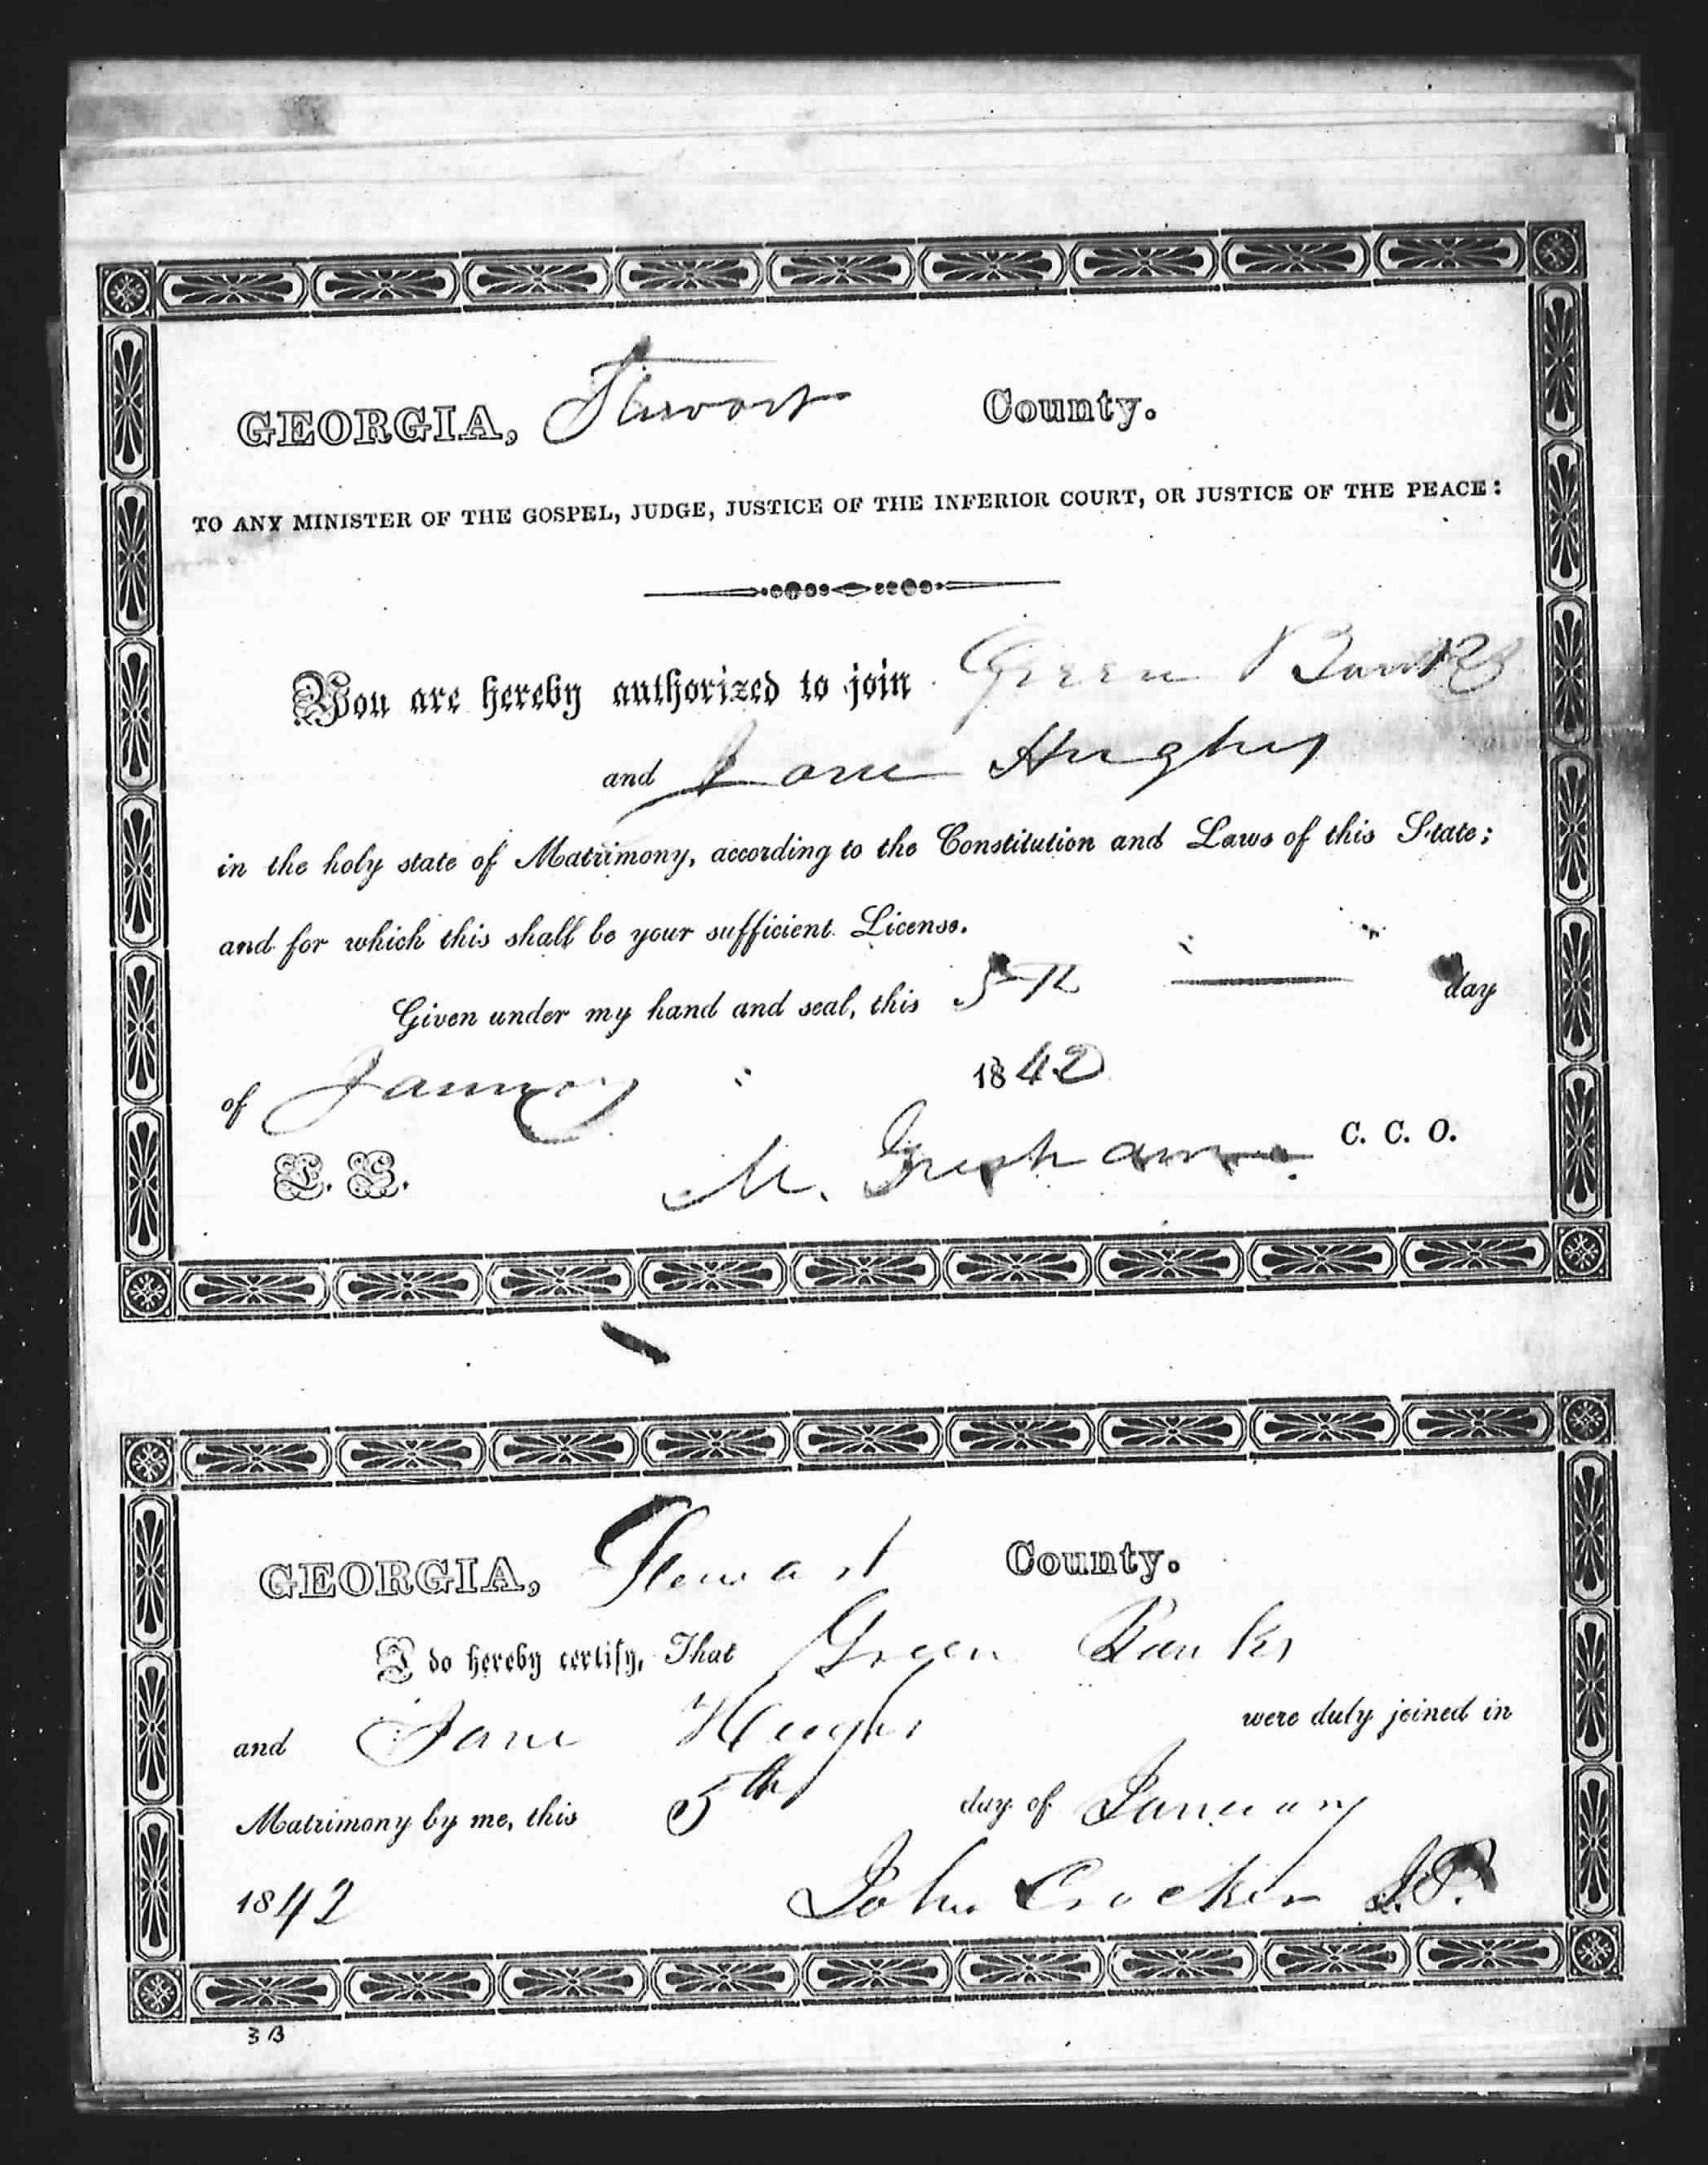 GEORGIA, Stewart County.
TO ANY MINISTER OF THE GOSPEL, JUDGE, JUSTICE OF THE INFERIOR COURT, OR JUSTICE OF THE PEACE:
You are hereby authorized to join Green Banks
and Jane Hughs
in the holy state of Matrimony, according to the Constitution and Laws of this State;
and for which this shall be your sufficient License.
Given under my hand and seal, this 5th day
of January 1842
L. S. M. Gresham C. C. O.
GEORGIA, Stewart County.
I do hereby certify, That Green Banks
and Jane Hughs were duly joined in
Matrimony by me, this 5th day of January
1842 John Crocker J.P.
3 B